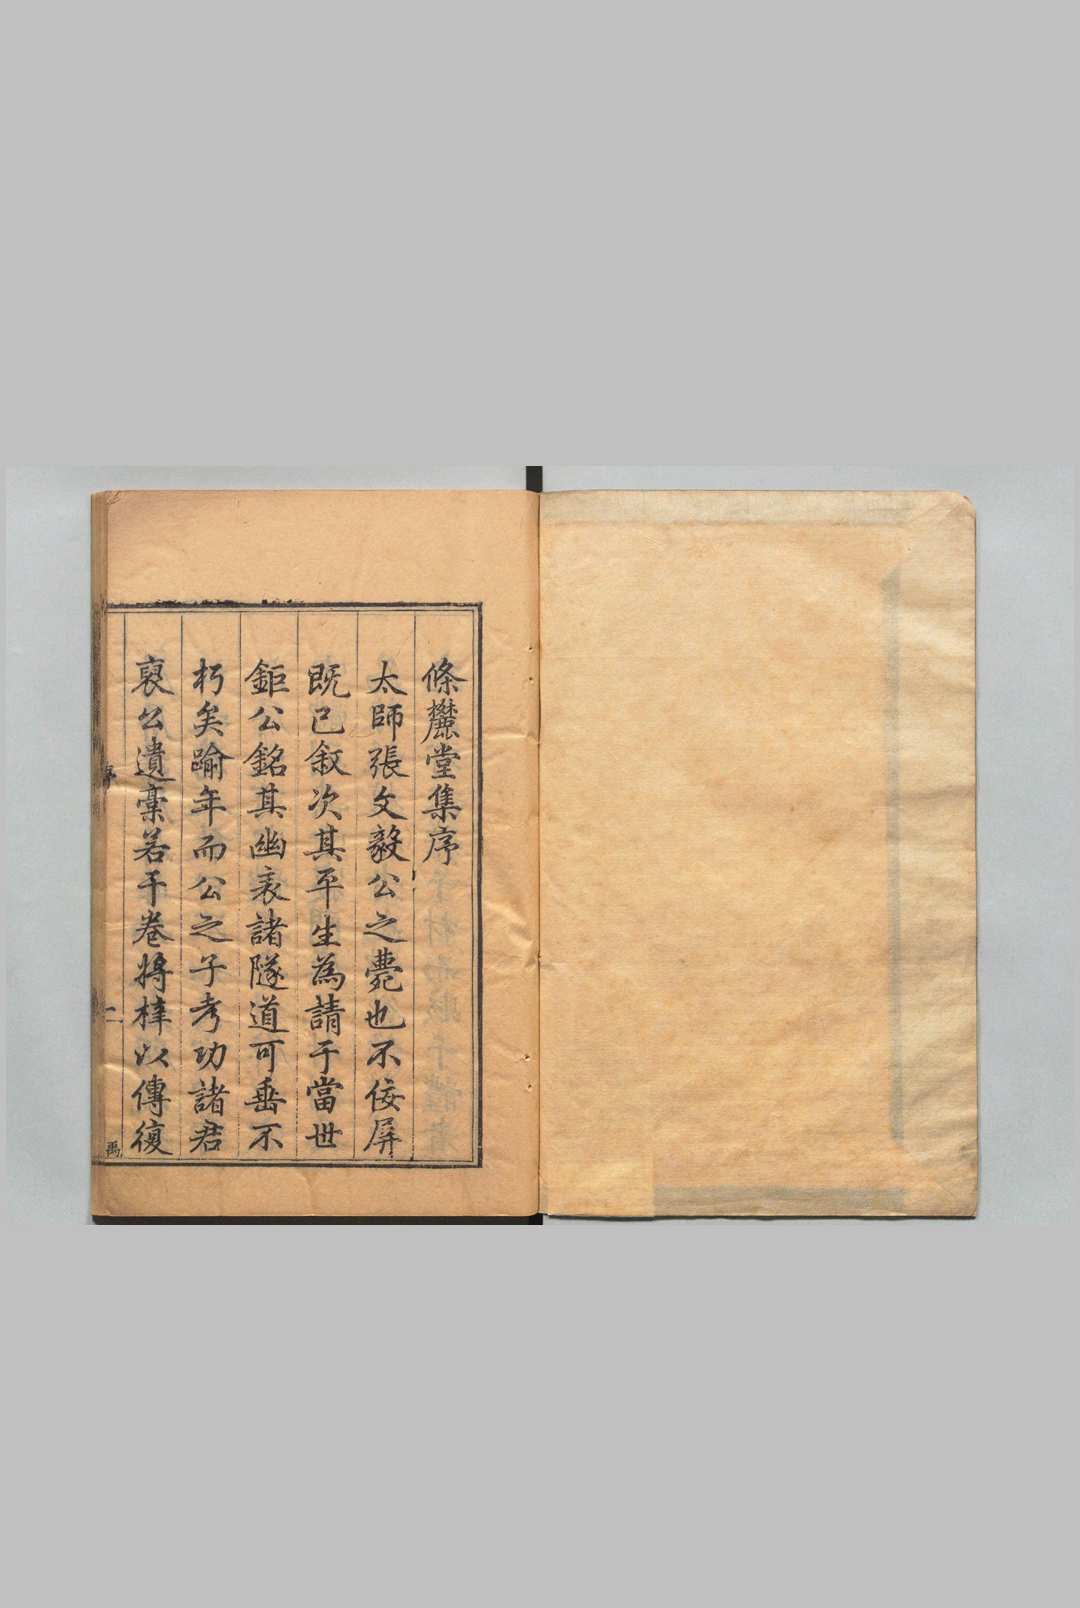 條麓堂集序
太師張文毅公之薨也不佞屏
既已叙次其平生為請于當世
鉅公銘其幽表諸隧道可垂不
朽矣踰年而公之子考功諸君
裒公遺稾若干卷將梓以傳復
序